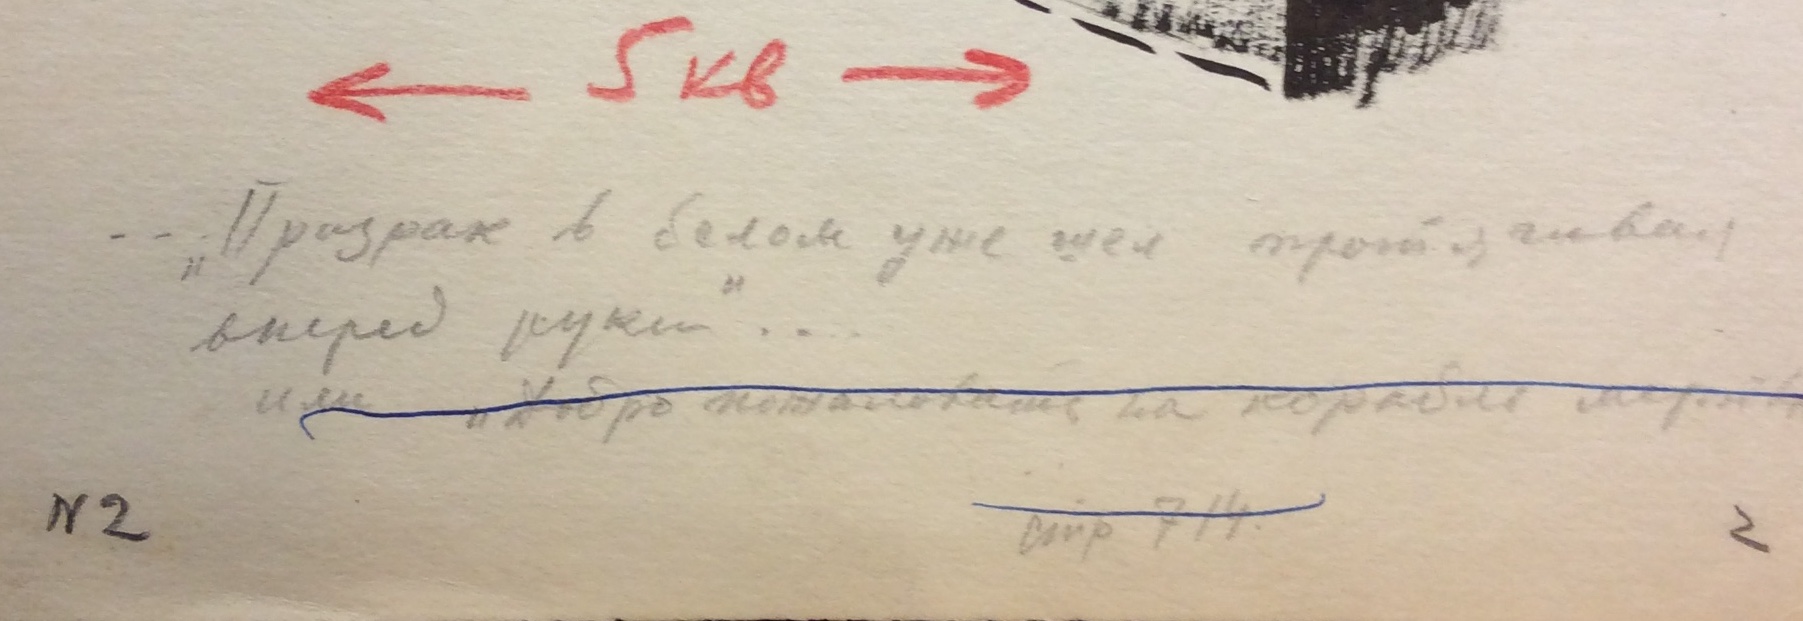 5 кв
... „Призрак в белом уже шел протягивая
вперед руки" ....
или „Добро пожаловать на корабль
N 2
стр 714.
2